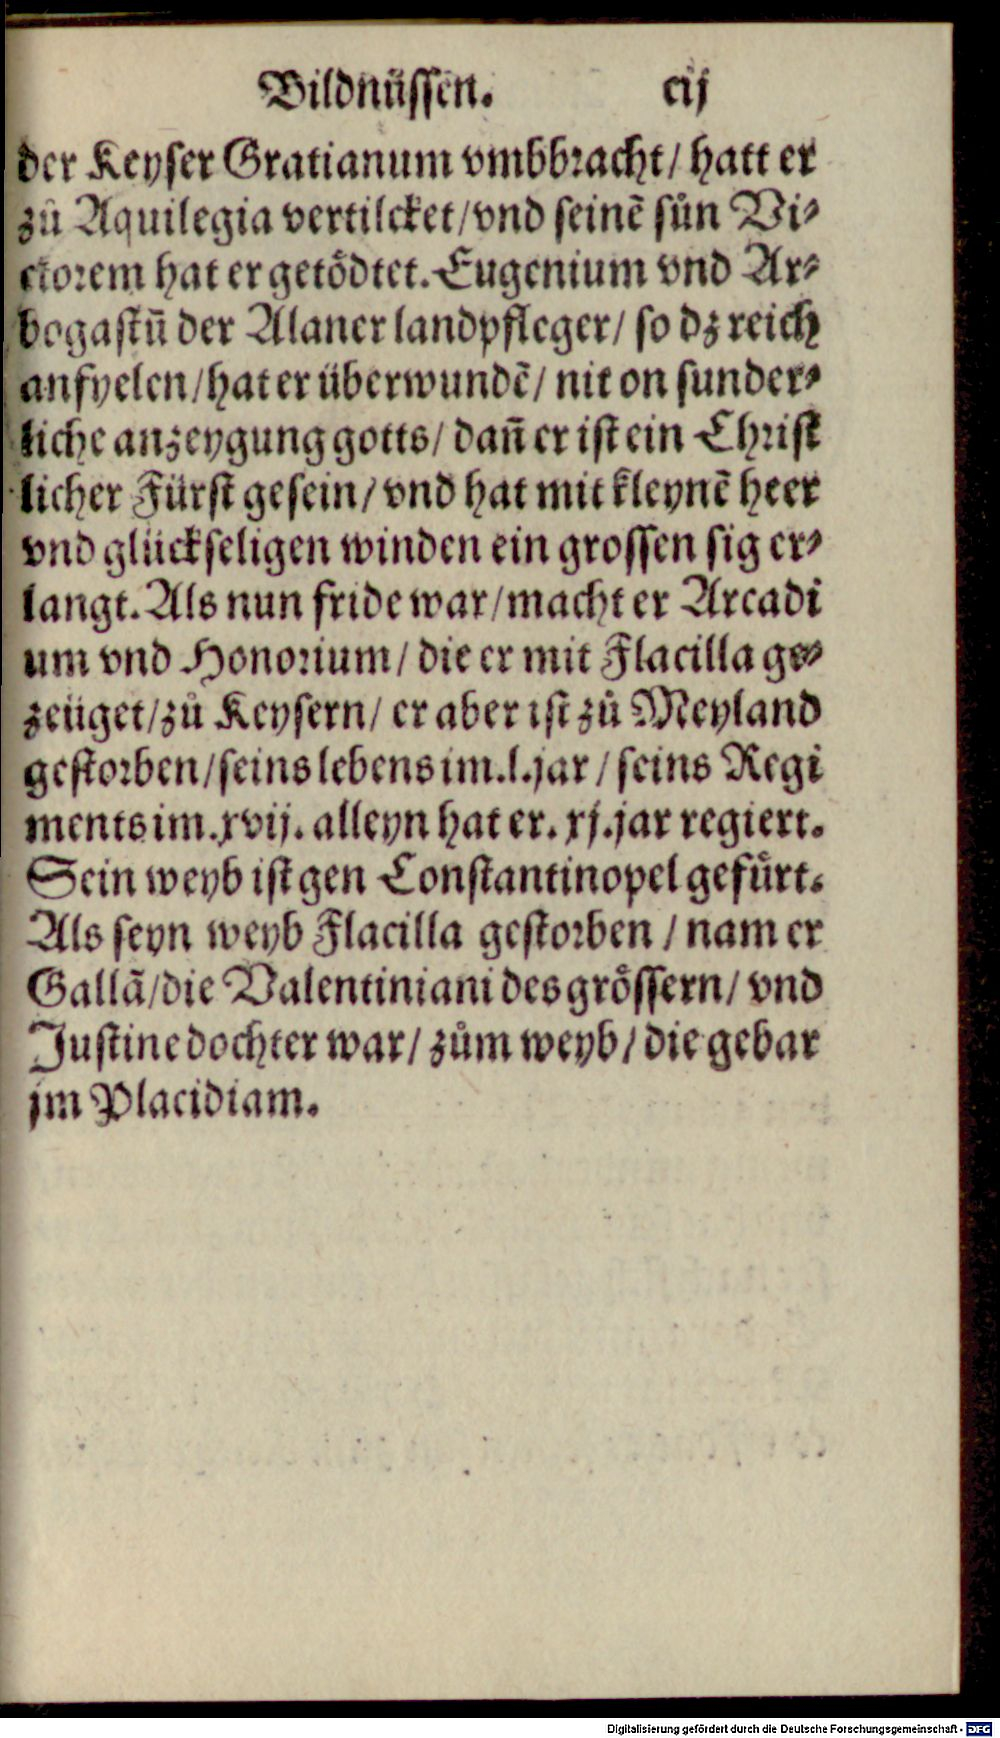 Bildnüssen. cij
der Keyser Gratianum vmbbracht/ hatt er
zů Aquilegia vertilcket/vnd seinē sůn Vi⸗
ctorem hat er getödtet. Eugenium vnd Ar⸗
bogastū der Alaner landpfleger/ so dz reich
anfyelen/hat er überwundē/ nit on sunder⸗
liche anzeygung gotts/ dañ er ist ein Christ
licher Fürst gesein/ vnd hat mit kleynē heer
vnd glückseligen winden ein grossen sig er⸗
langt. Als nun fride war/macht er Arcadi
um vnd Honorium/ die er mit Flacilla ge⸗
zeüget/zů Keysern/ er aber ist zů Meyland
gestorben/seins lebens im.l.jar/ seins Regi
ments im.xvij. alleyn hat er. xj.jar regiert.
Sein weyb ist gen Constantinopel gefürt.
Als seyn weyb Flacilla gestorben/ nam er
Gallā/die Valentiniani des grössern/ vnd
Justine dochter war/ zům weyb/ die gebar
jm Placidiam.
Digitalisierung gefördert durch die Deutsche Forschungsgemeinschaft - DFG